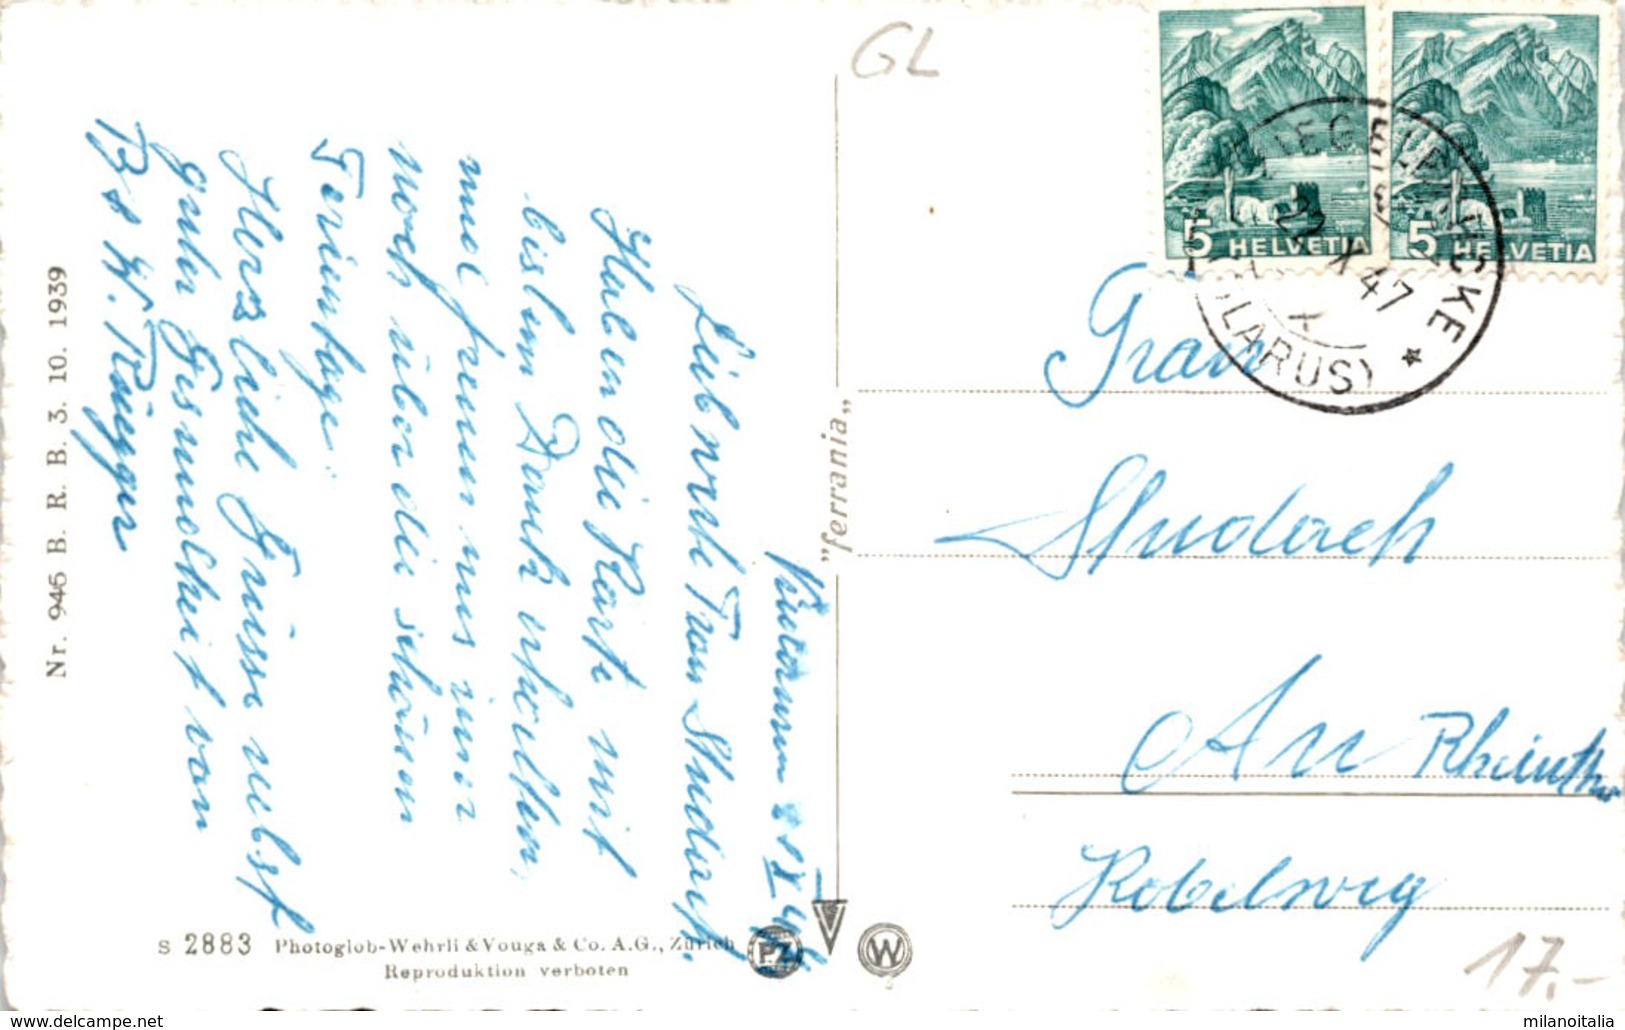 GL
5 HELVETIA
5 HELVETIA
ZIEGELBRÜCKE
X 47
(GLARUS) ★
Frau
Studach
Au Rheinthal
Kobelweg
17.-
"ferrania"
21 X 47
Liebwerte Frau Studach.
Haben die Karte mit
bestem Dank erhalten,
und freuen uns immer
noch über die schönen
Ferientage.
Herzliche Grüsse nebst
guter Gesundheit von
W. Rüegger
Nr. 945 B. R. B. 3. 10. 1939
S 2883 Photoglob-Wehrli & Vouga & Co. A.G., Zürich
Reproduktion verboten
PZ
W
milanoitalia
www.delcampe.net